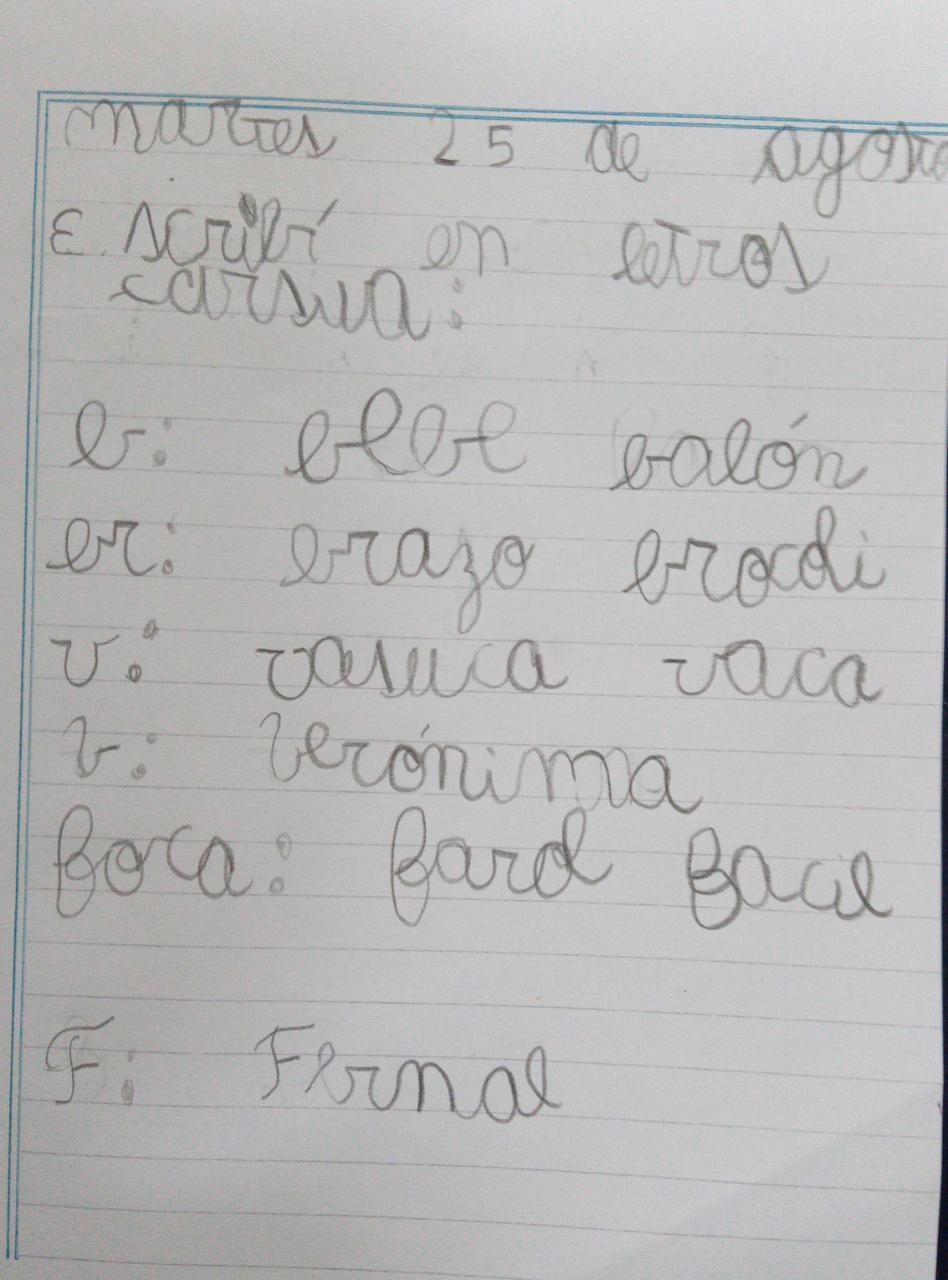 martes 25 de agosto
Escribí en letras
carsiva:
b: bebe balón
br: brazo brodi
v: vasuca vaca
v: verónima
foca: farol facil
F: Fernal